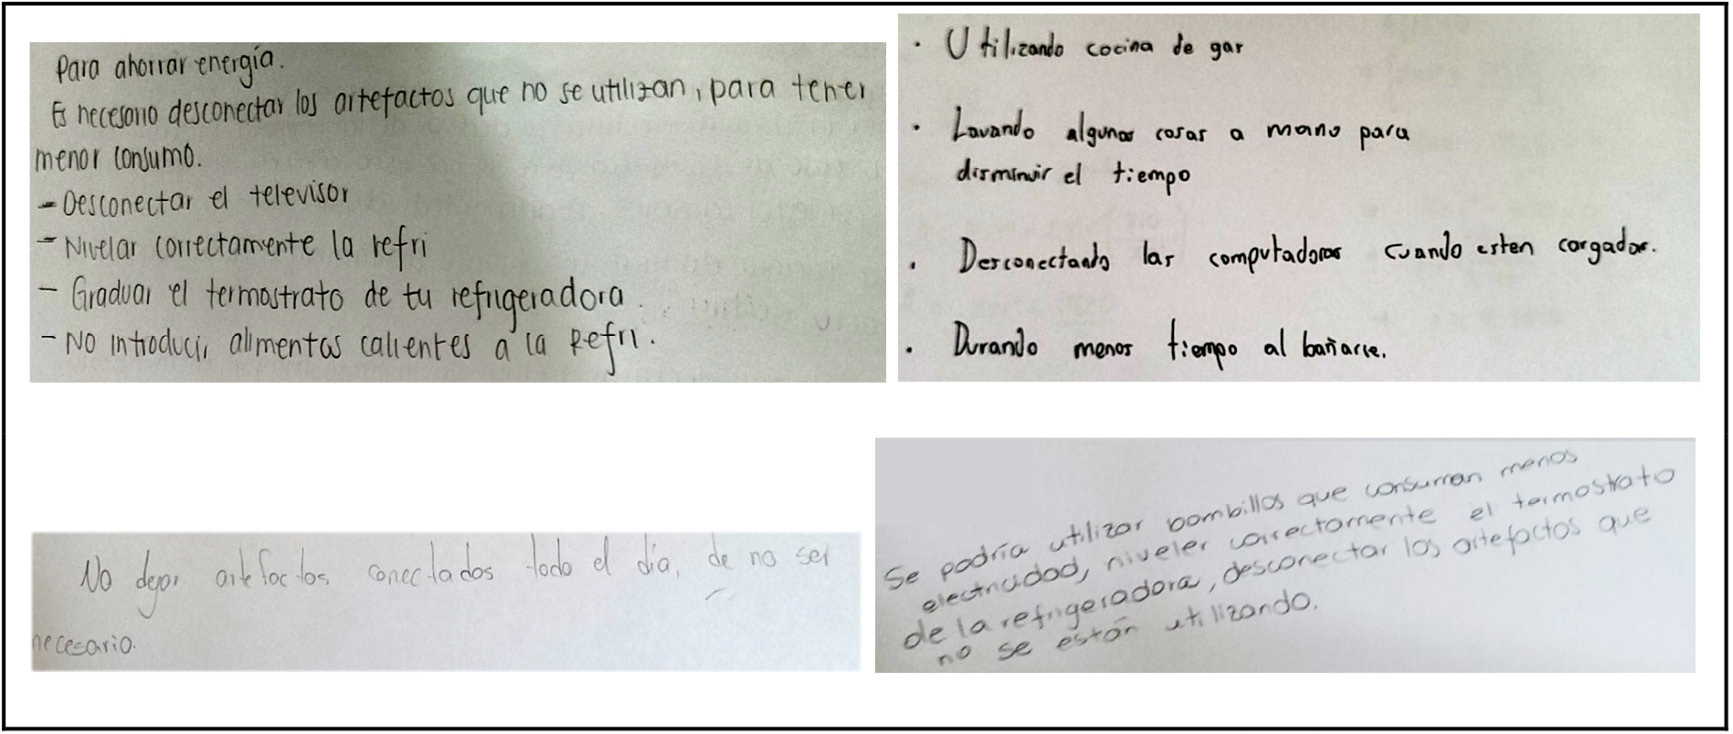 Para ahorrar energía.
Es necesario desconectar los artefactos que no se utilizan, para tener
menor consumo.
- Desconectar el televisor
- Nivelar correctamente la refri
- Graduar el termostrato de tu refrigeradora.
- No introducir alimentos calientes a la Refri.
· Utilizando cocina de gas
· Lavando algunas cosas a mano para
disminuir el tiempo
· Desconectando las computadoras cuando esten cargadas.
· Durando menos tiempo al bañarse.
No dejar artefactos conectados todo el día, de no ser
necesario.
Se podría utilizar bombillos que consuman menos
electricidad, niveler correctamente el termostrato
de la refrigeradora, desconectar los artefactos que
no se están utilizando.